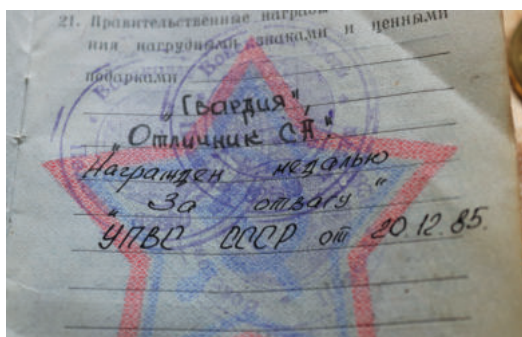 21. Правительственные награды
ния нагрудными знаками и ценными
подарками
„Гвардия",
„Отличник СА."
Награжден медалью
„За отвагу"
УПВС СССР от 20.12.85.